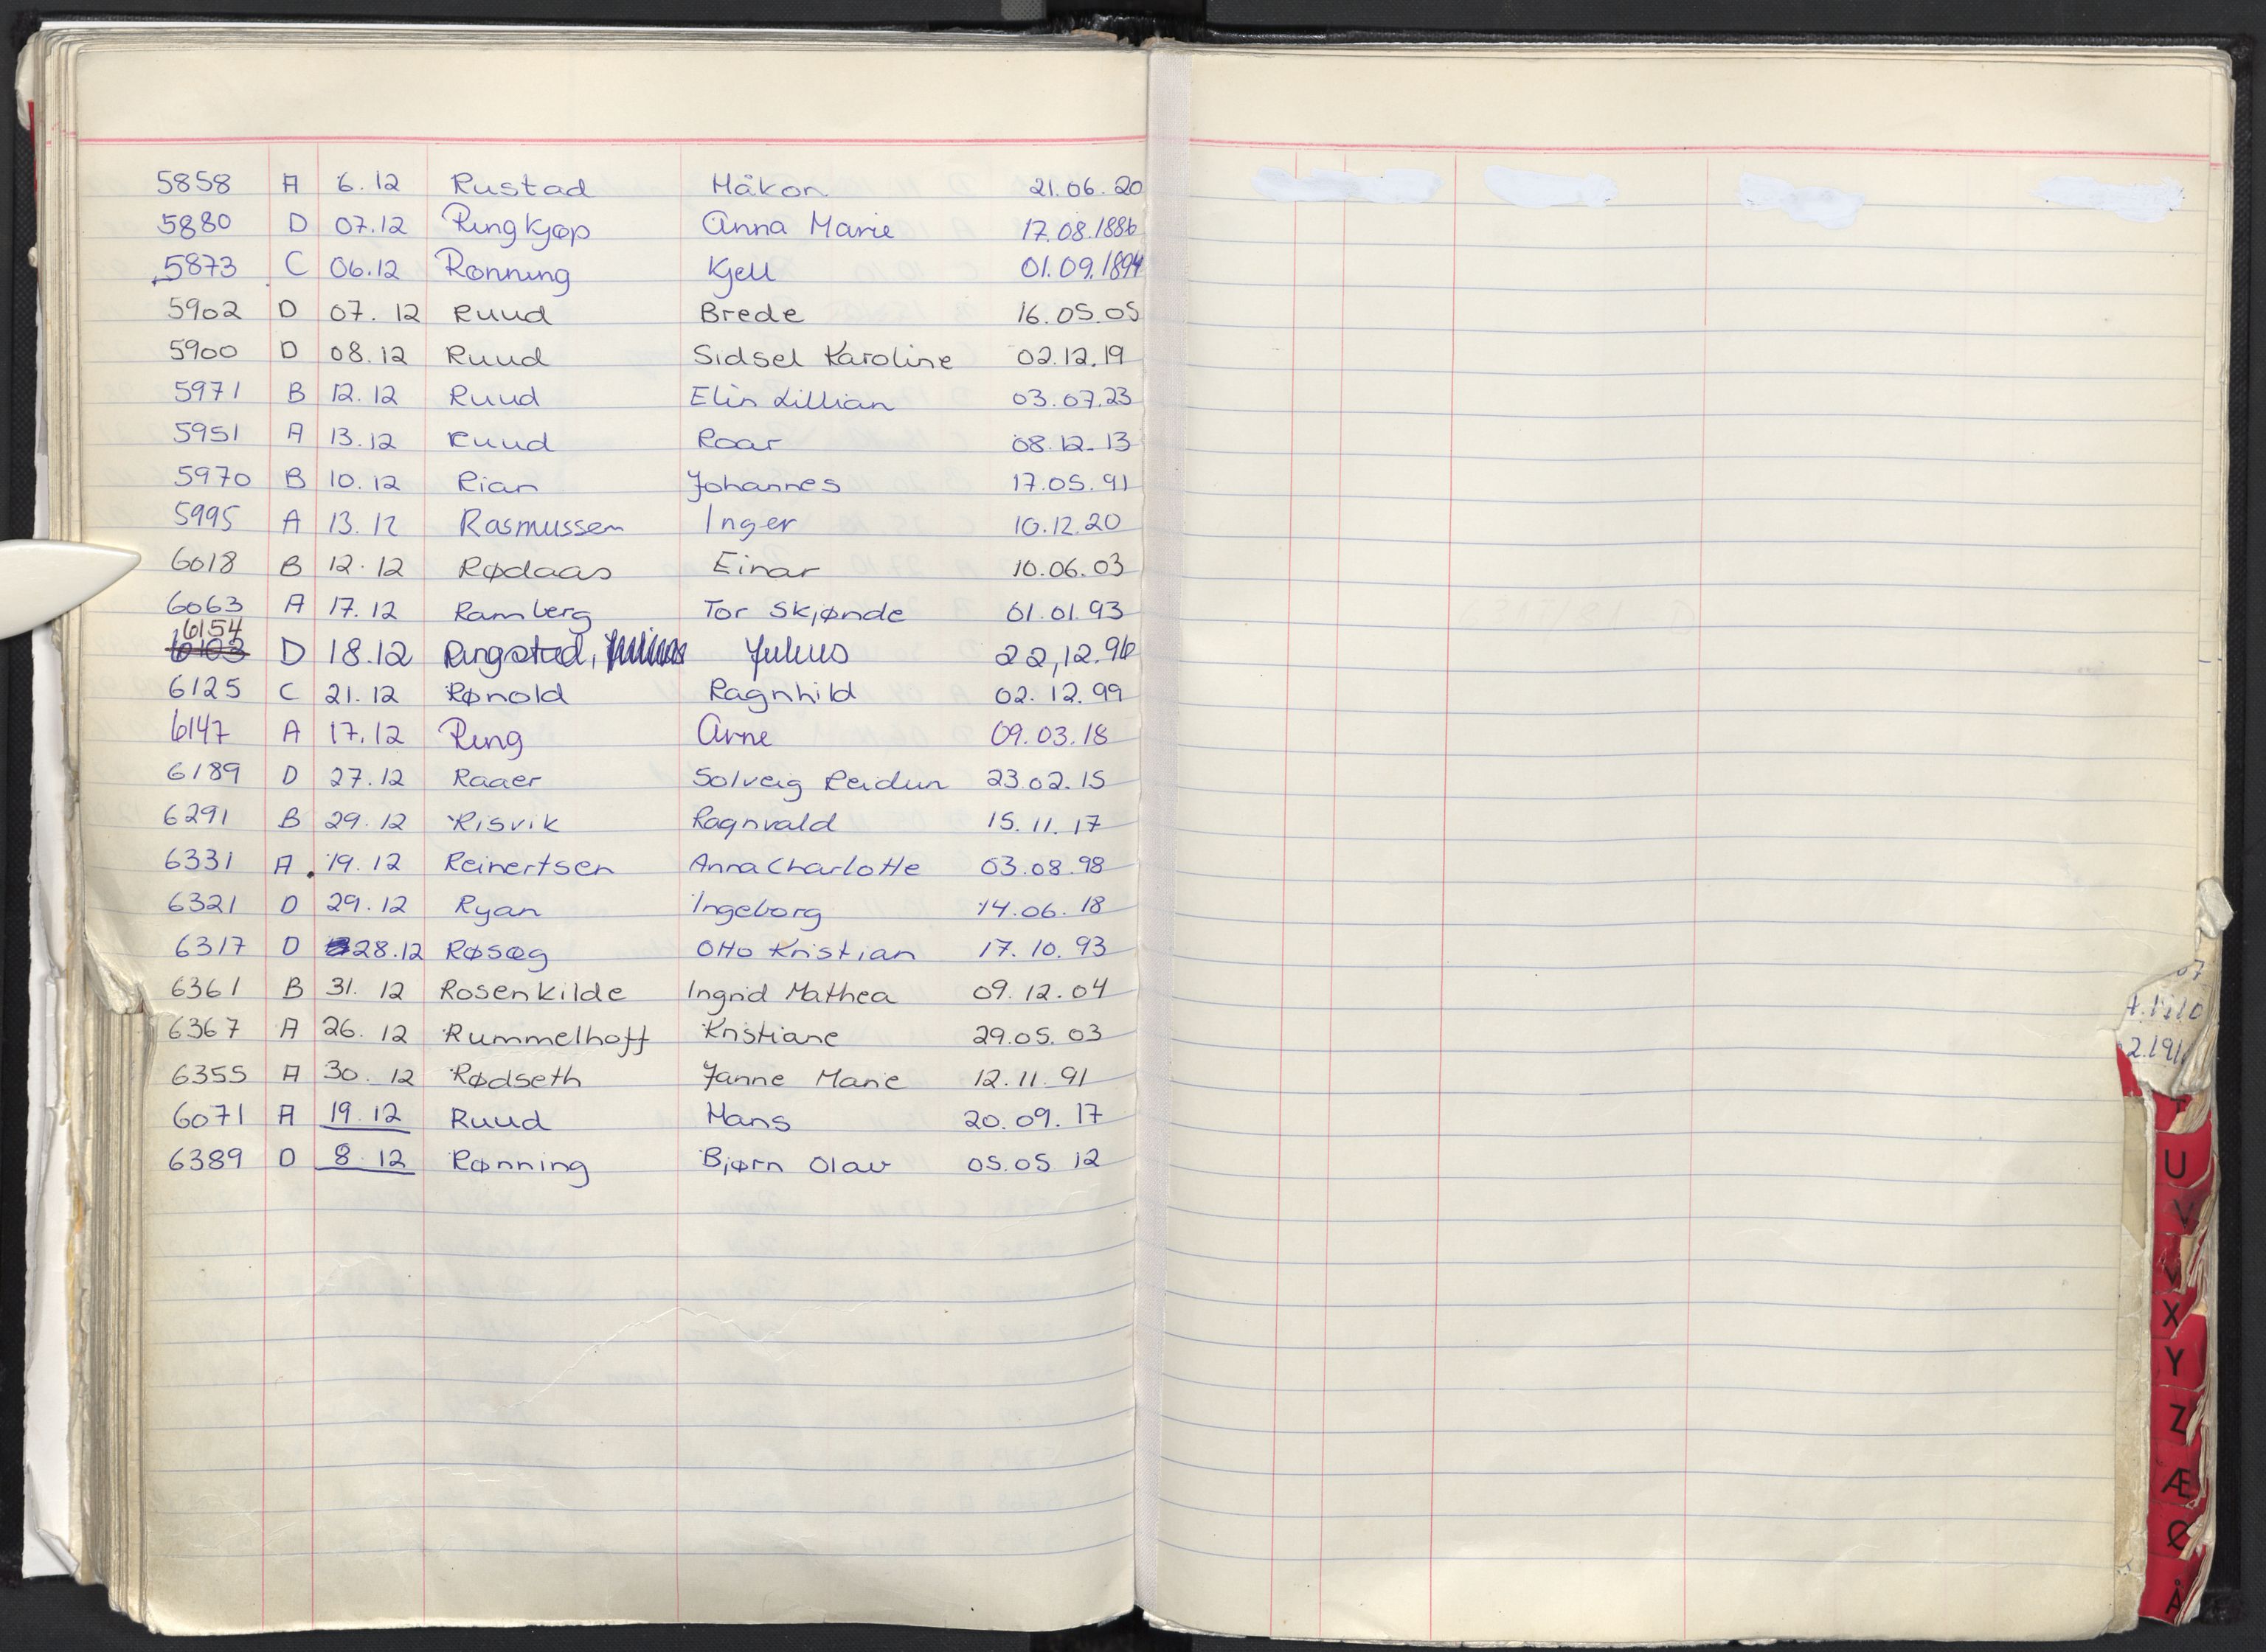 5858 A 6.12 Rustad Håkon 21.06.20
5880 D 07.12 Ringkjøp Anna Marie 17.08.1886
5873 C 06.12 Rønning Kjell 01.09.1894
5902 D 07.12 Ruud Brede 16.05.05
5900 D 08.12 Ruud Sidsel Karoline 02.12.19
5971 B 12.12 Ruud Elin Lillian 03.07.23
5951 A 13.12 Ruud Roar 08.12.13
5970 B 10.12 Rian Johannes 17.05.91
5995 A 13.12 Rasmussen Inger 10.12.20
6018 B 12.12 Rødaas Einar 10.06.03
6063 A 17.12 Ramberg Tor Skjønde 01.01.93
6154
6103 D 18.12 Ringstad, Julius 22,12.96
6125 C 21.12 Rønold Ragnhild 02.12.99
6147 A 17.12 Ring Arne 09.03.18
6189 D 27.12 Raaer Solveig Reidun 23.02.15
6291 B 29.12 Risvik Ragnvald 15.11.17
6331 A. 19.12 Reinertsen Anna Charlotte 03.08.98
6321 D 29.12 Ryan Ingeborg 14.06.18
6317 D 28.12 Røsæg Otto Kristian 17.10.93
6361 B 31.12 Rosenkilde Ingrid Mathea 09.12.04
6367 A 26.12 Rummelhoff Kristiane 29.05.03
6355 A 30.12 Rødseth Janne Marie 12.11.91
6071 A 19.12 Ruud Hans 20.09.17
6389 D 8.12 Rønning Bjørn Olav 05.05 12
07
2.191
U
V
X
Y
Z
Æ
Ø
Å